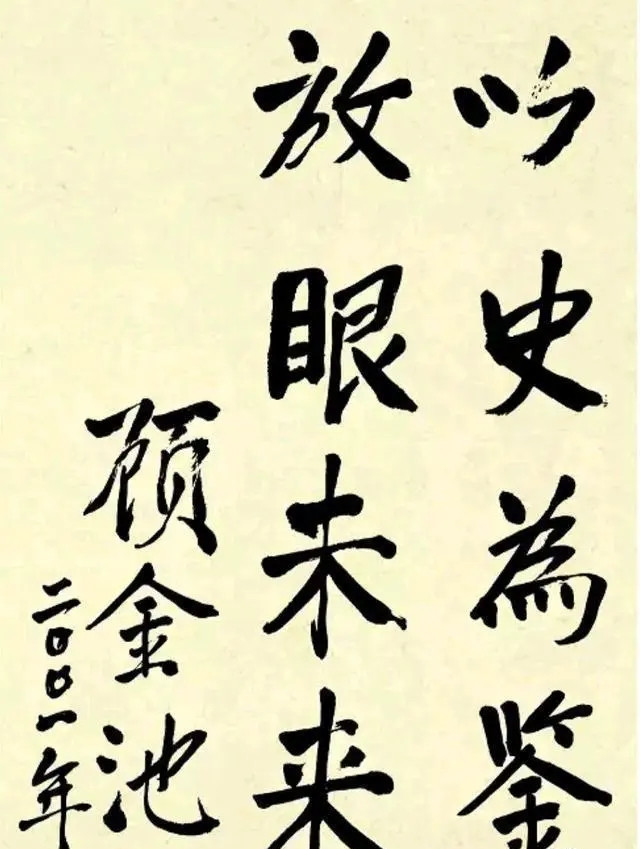 以史為鉴
放眼未来
顾金池
二〇〇一年